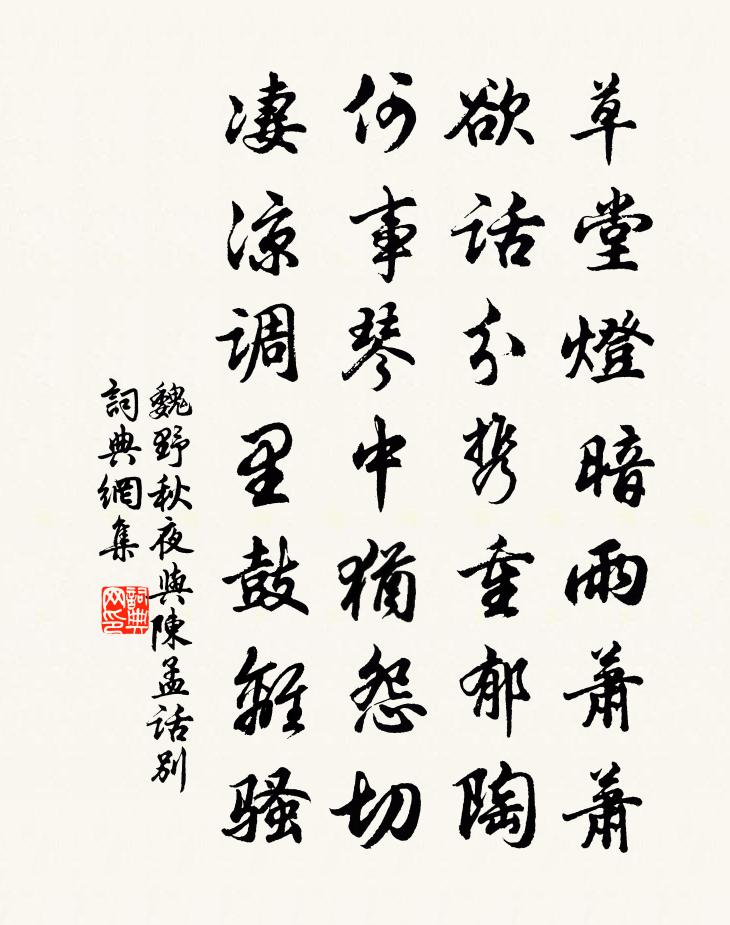 草堂燈暗雨蕭蕭
欲話分携重郁陶
何事琴中猶怨切
凄涼調里鼓離騷
魏野秋夜與陳孟話別
詞典網集
詞典網印